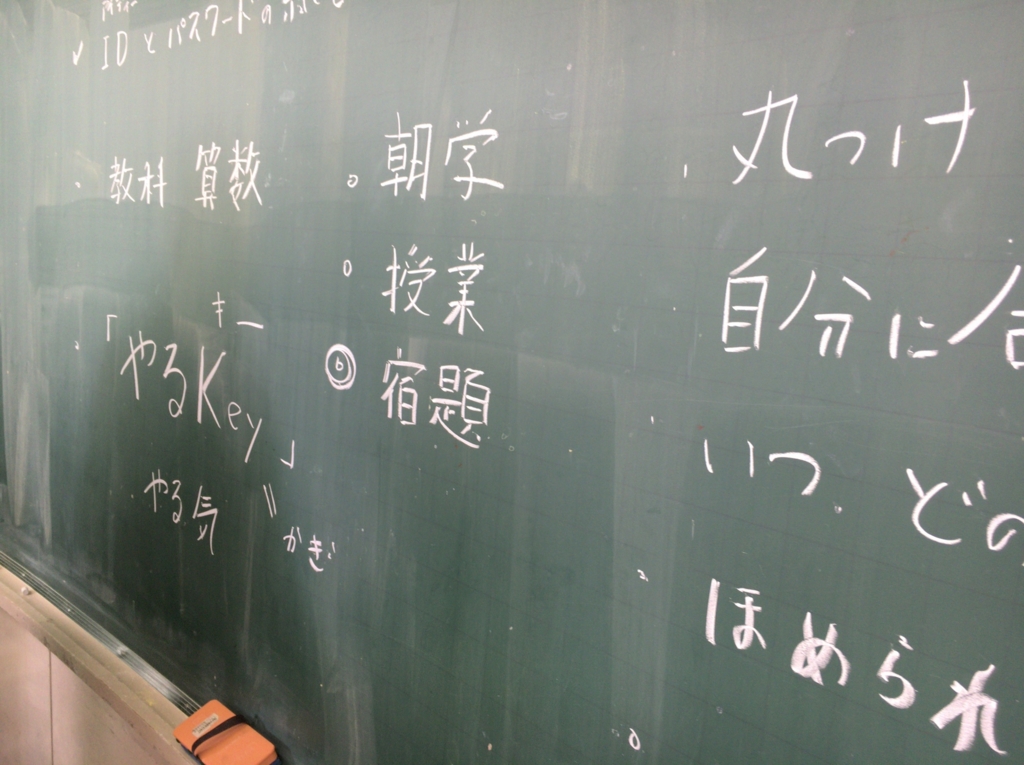 ✓ IDとパスワードの
・教科 算数
・「やるKey」
キー
やる気 〃
かぎ
○ 朝学
○ 授業
◎ 宿題
・丸つけ
・自分に合
・いつ、どの
ほめられ